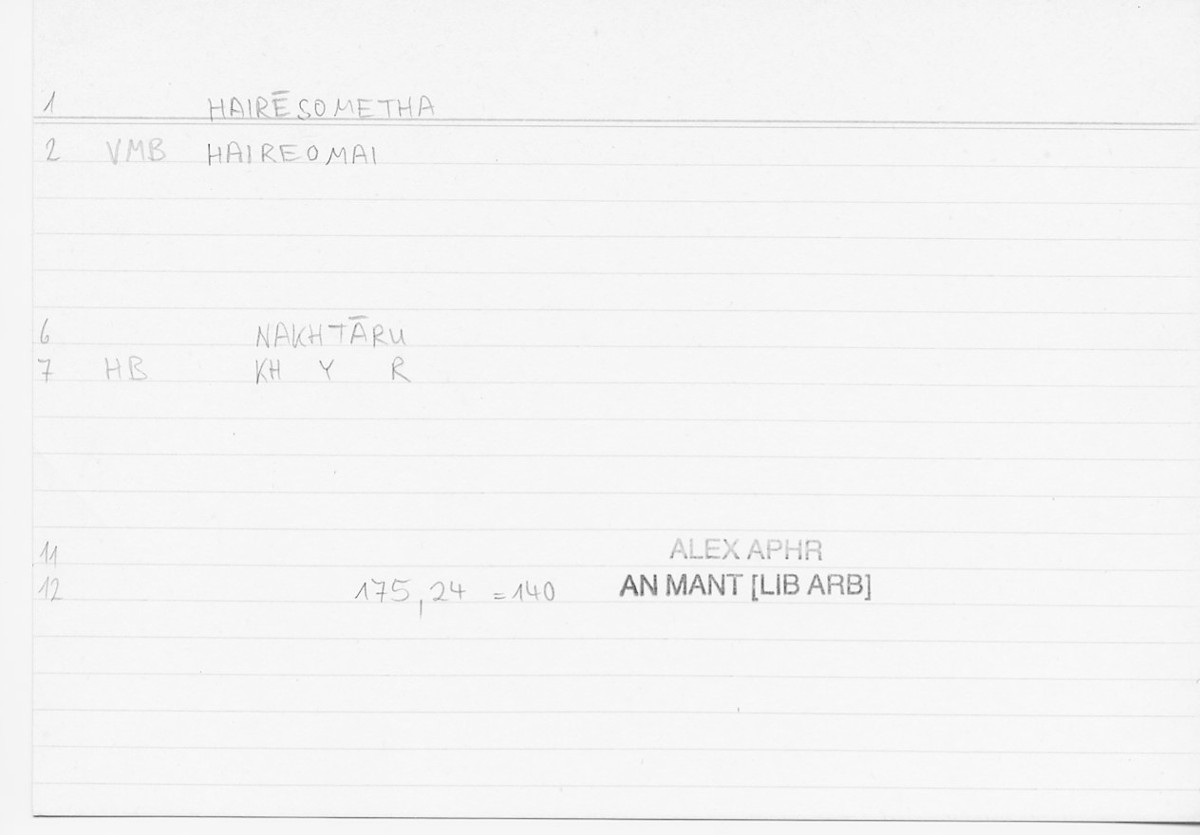 1 HAIRĒSOMETHA
2 VMB HAIREOMAI
6 NAKHTĀRU
7 HB KH Y R
11 ALEX APHR
12 175,24 =140 AN MANT [LIB ARB]